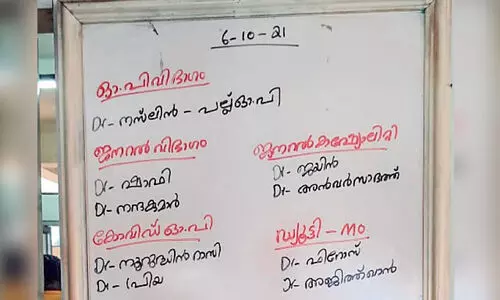 6-10-21
ഓ.പി വിഭാഗം
Dr- നസ്ലിൻ - പല്ല് ഒ.പി
ജനറൽ വിഭാഗം
Dr- ഷാഫി
Dr- നന്ദകുമാർ
കോവിഡ് ഓ.പി
Dr- നൂറുദ്ധിൻ റാസി
Dr- പ്രിയ
ജനറൽ കാഷ്വാലിറ്റി
Dr- ജയിൻ
Dr- അൻവർസാദത്ത്
ഡ്യൂട്ടി - MO
Dr- ഫിറോസ്
Dr- അജിത്ത്ഖാൻ